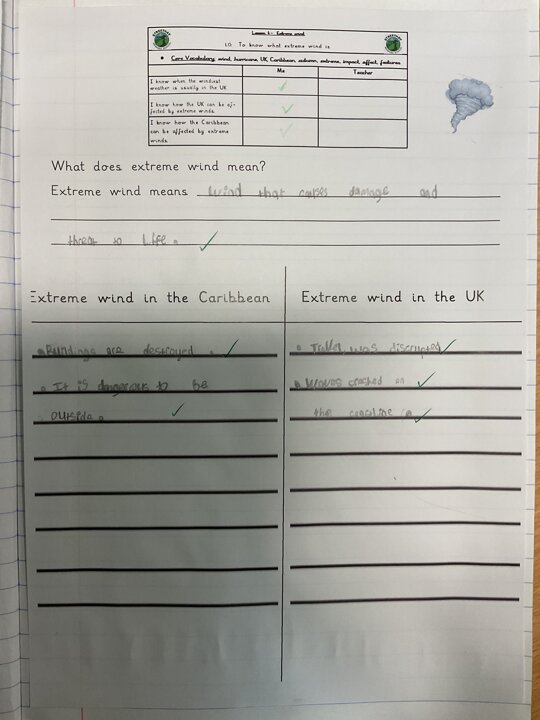 Lesson 1:- Extreme wind
LO: To know what extreme wind is
Core Vocabulary: wind, hurricane, UK, Caribbean, autumn, extreme, impact, affect, features
Me Teacher
I know when the windiest
weather is usually in the UK
I know how the UK can be af-
fected by extreme winds.
I know how the Caribbean
can be affected by extreme
winds.
What does extreme wind mean?
Extreme wind means wind that causes damage and
threat to life.
Extreme wind in the Caribbean
• Buildings are destroyed.
• It is dangerous to be
outside.
Extreme wind in the UK
• was discrupted
• waves crashed on
the coastline